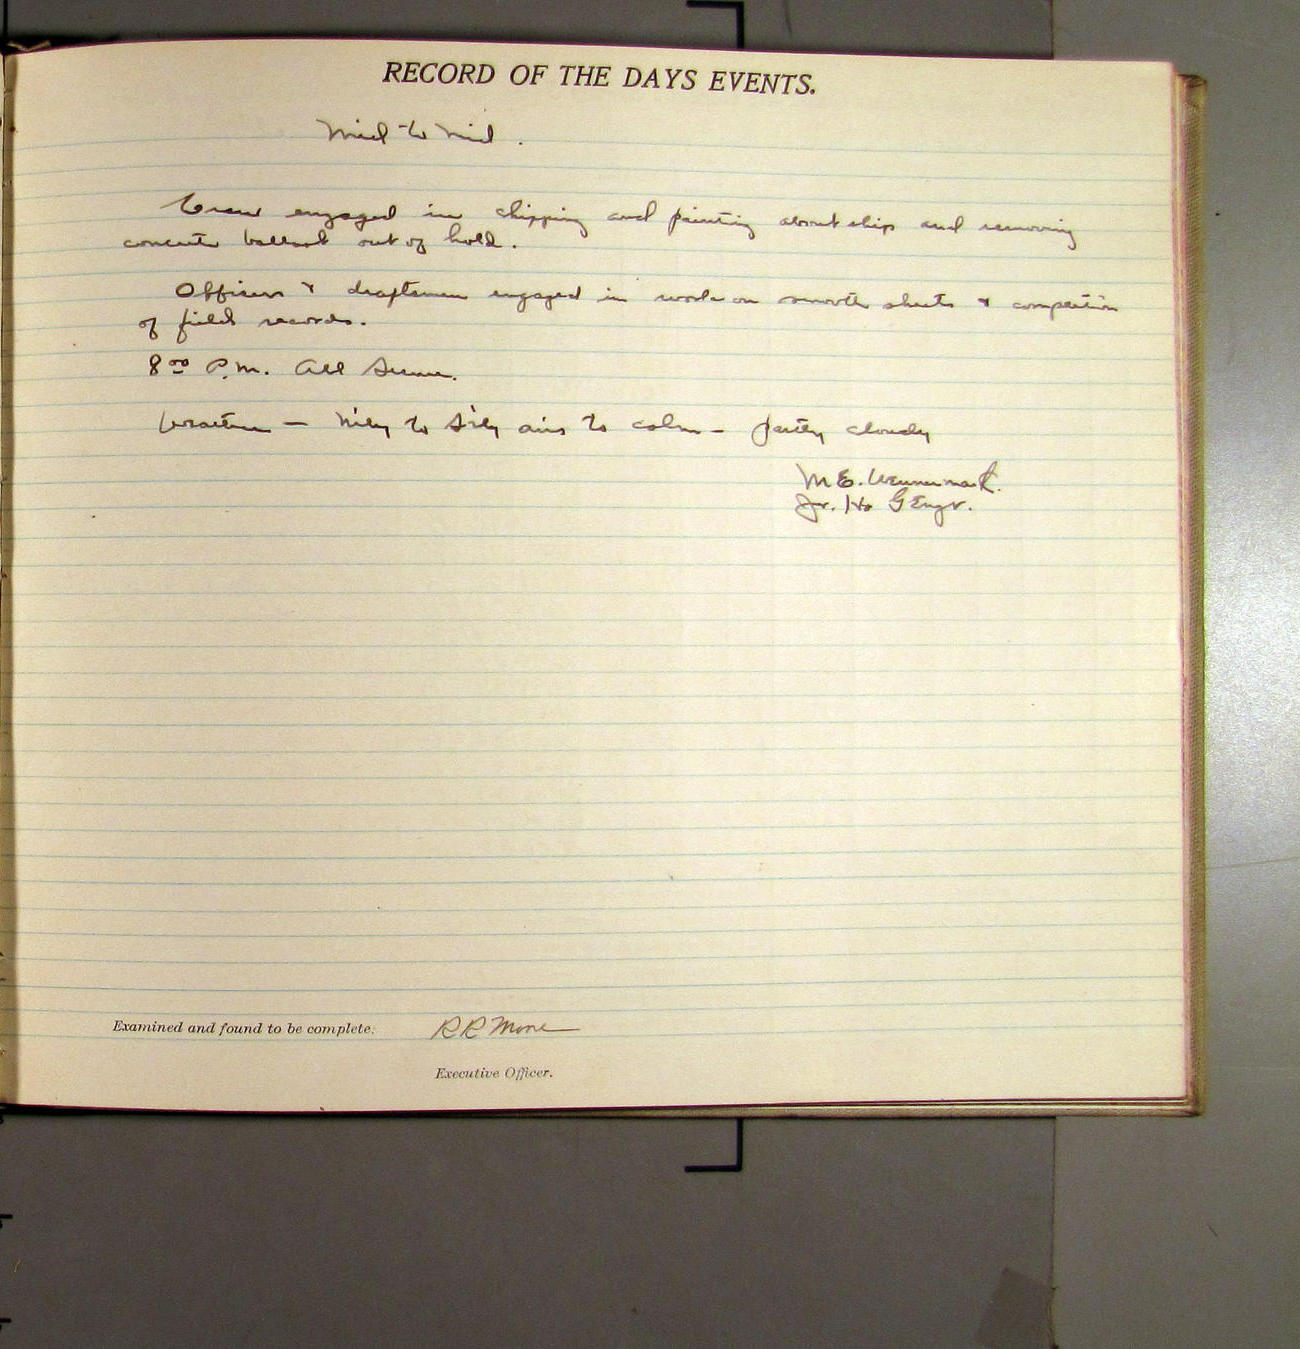 RECORD OF THE DAYS EVENTS.
Mid to Mid.
Crew engaged in chipping and painting about ship and removing
concrete ballast out of hold.
Officers & draftsmen engaged in work on smooth sheets & completion
of field records.
8⁰⁰ P.M. All Secure.
Weather — N'ly to S'ly airs to calm — partly cloudy
M.E. Wennermark.
Jr. H & G Engr.
Examined and found to be complete. R R Moore
Executive Officer.